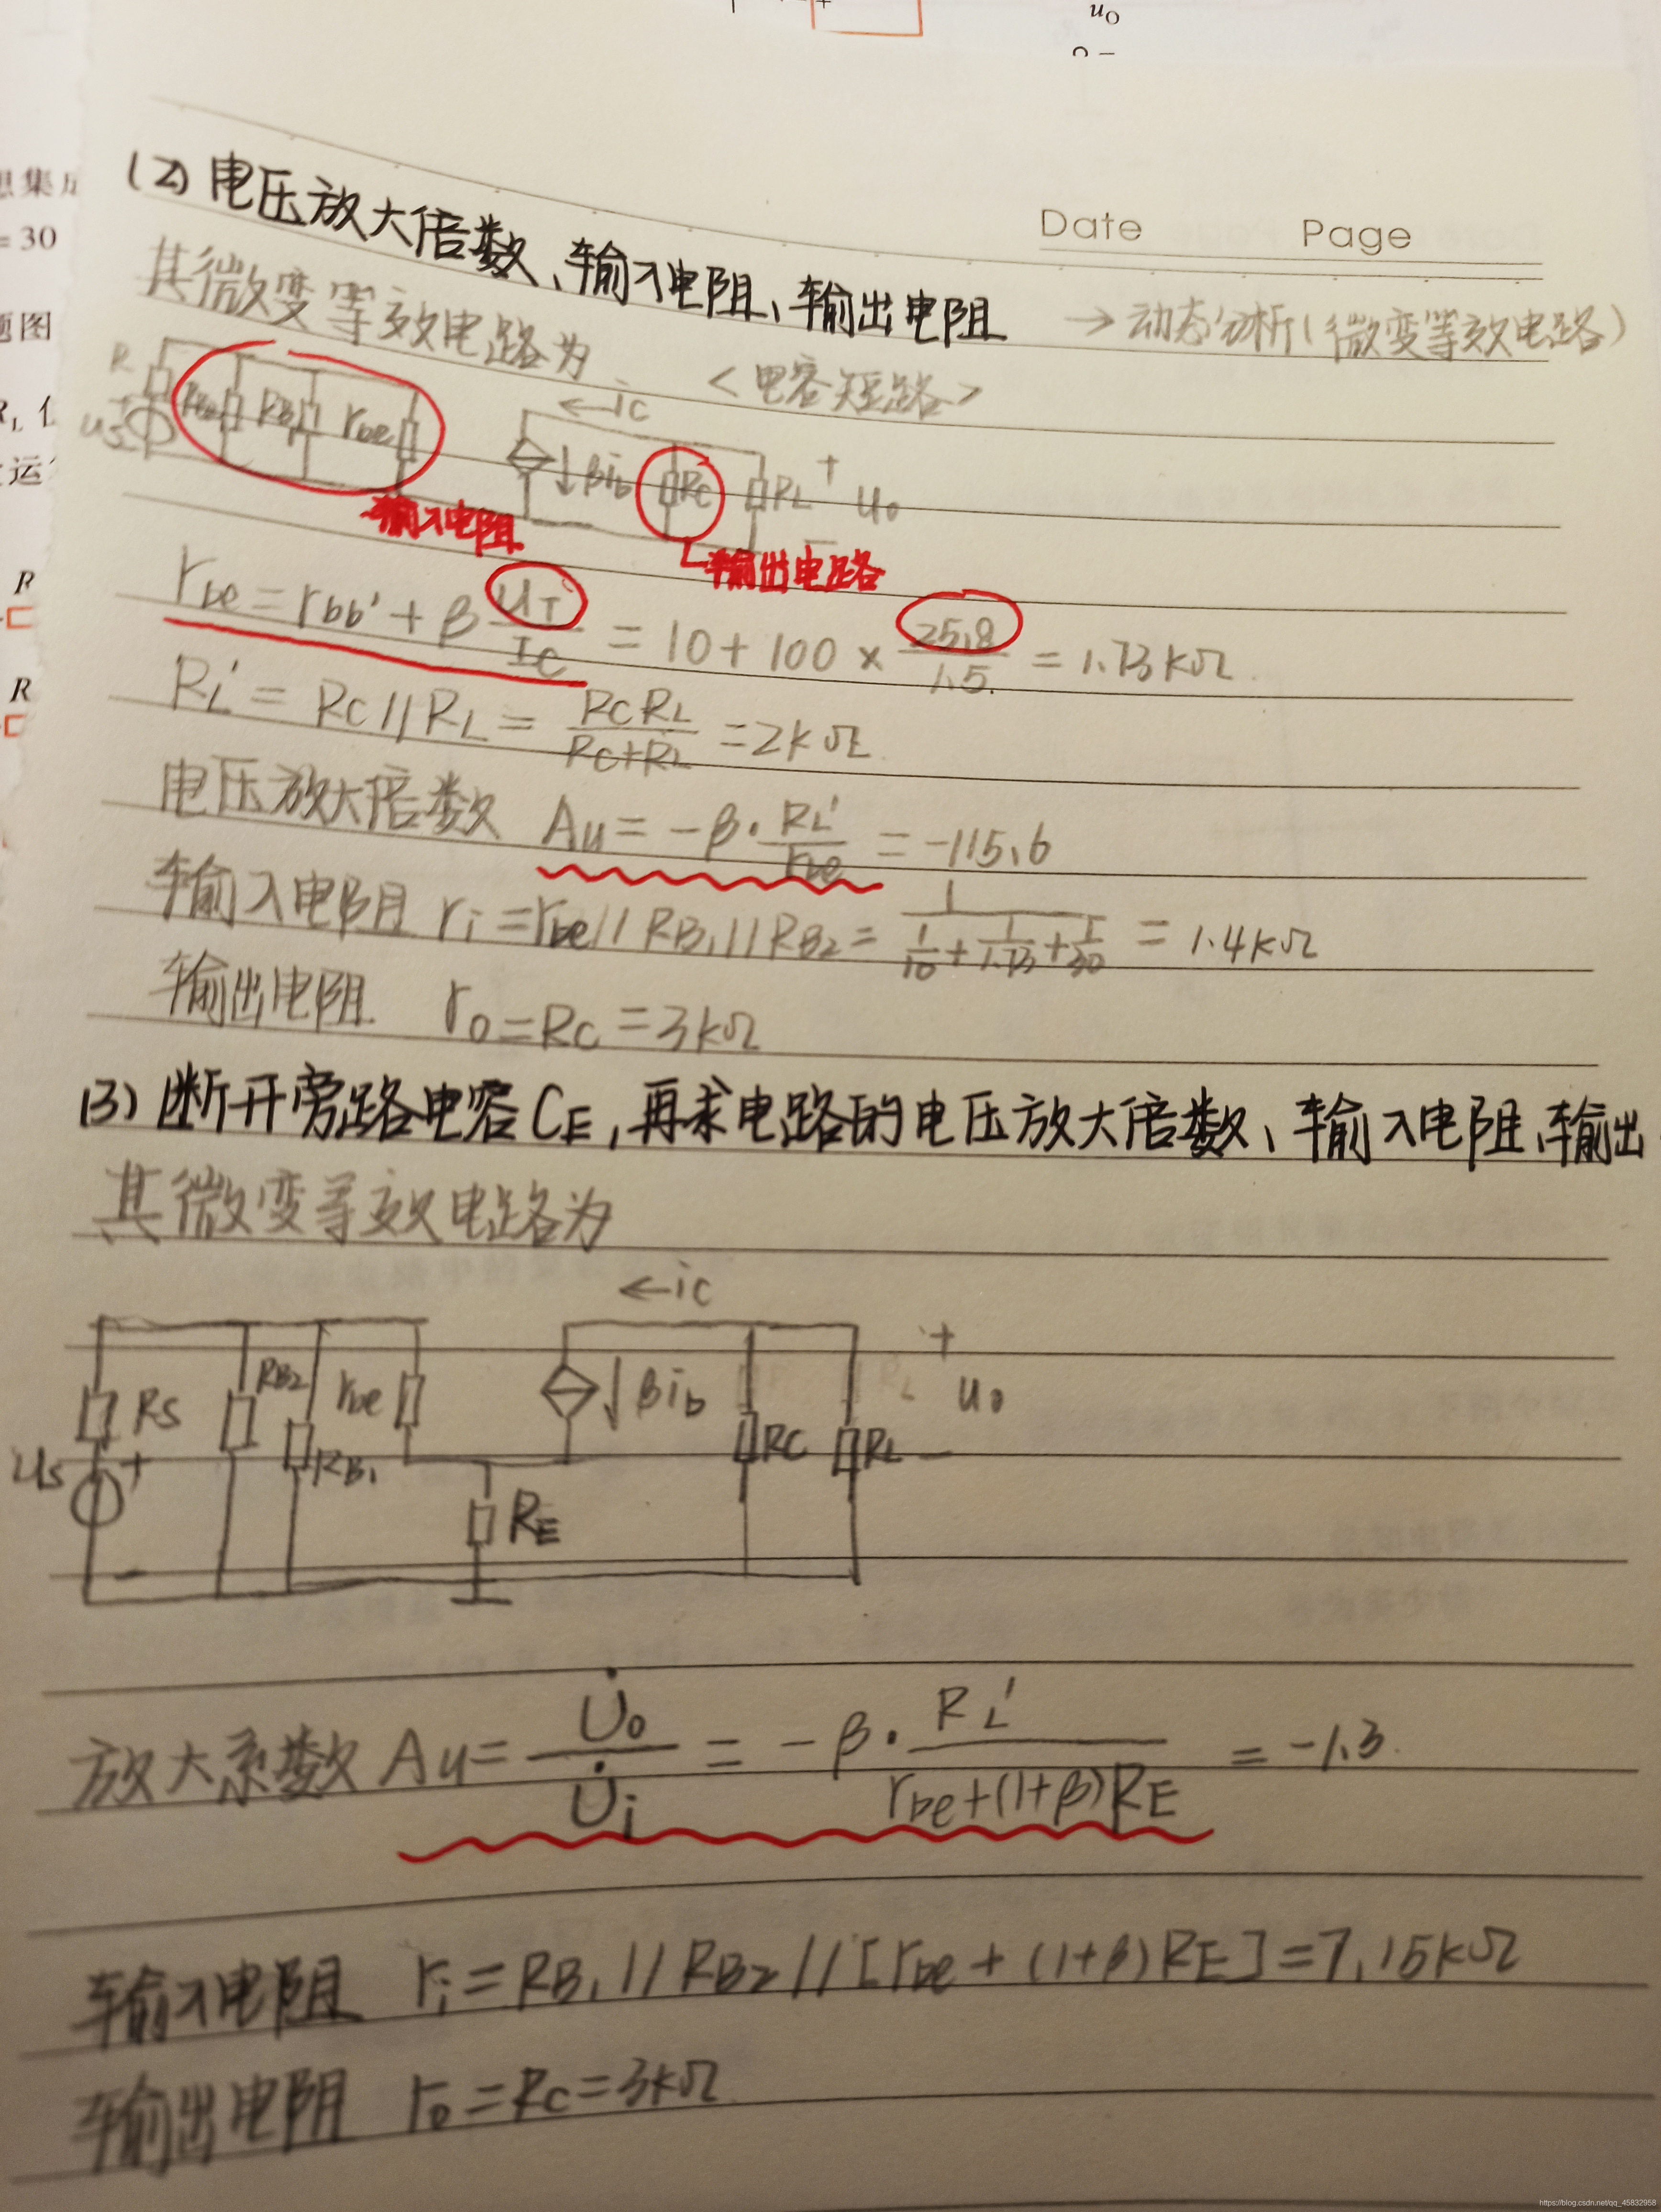 u_O
想集成
= 30
题图
R_L
运
R
R
Date Page
(2) 电压放大倍数、输入电阻、输出电阻 → 动态分析(微变等效电路)
其微变等效电路为 <电容短路>
R us RB rbe ←ic βib RC RL + uo
输入电阻 输出电路
rbe = rbb' + β UT/IC = 10 + 100 × 25.8/1.5 = 1.73kΩ
RL' = RC // RL = RCRL/(RC+RL) = 2kΩ
电压放大倍数 Au = -β · RL'/rbe = -115.6
输入电阻 ri = rbe // RB1 // RB2 = 1/(1/10 + 1/1.73 + 1/30) = 1.4kΩ
输出电阻 ro = RC = 3kΩ
(3) 断开旁路电容CE, 再求电路的电压放大倍数、输入电阻、输出
其微变等效电路为
←ic
RS RB2 rbe βib + uo
us + RB1 RC RL -
- RE
放大系数 Au = U̇o/U̇i = -β · RL'/(rbe+(1+β)RE) = -1.3
输入电阻 ri = RB1 // RB2 // [rbe + (1+β)RE] = 7.15kΩ
输出电阻 ro = RC = 3kΩ
https://blog.csdn.net/qq_45832958